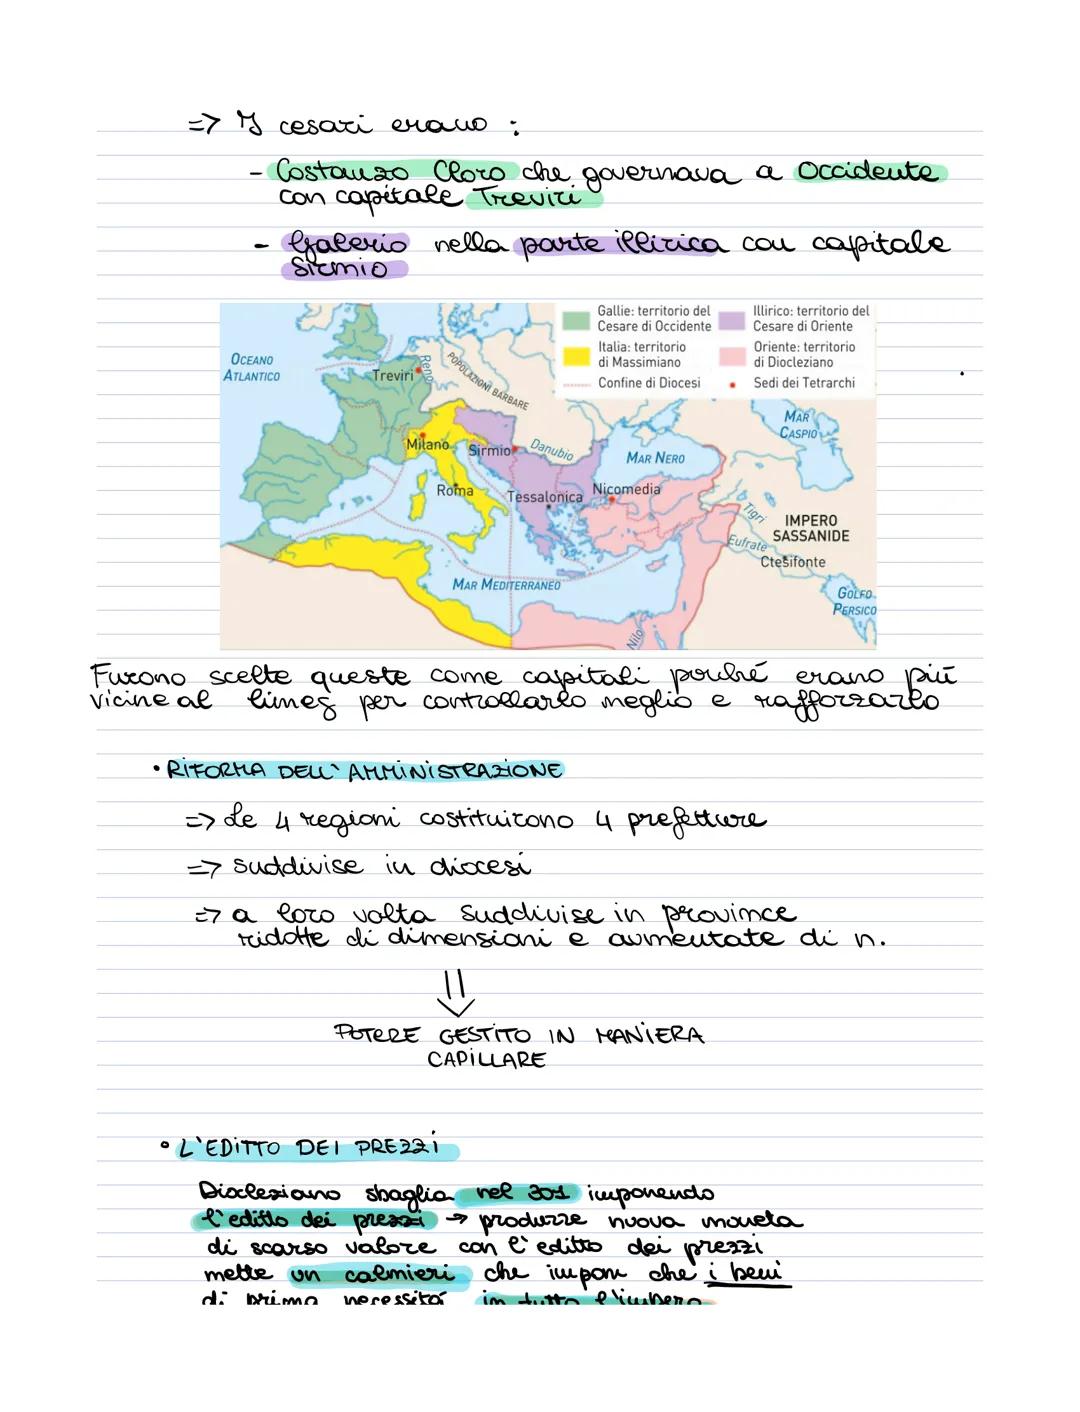 => I cesari erano :
- Costanzo Cloro che governava a Occidente
con capitale Treviri
- Galerio nella parte illirica con capitale
Sirmio
Gallie: territorio del
Cesare di Occidente
Illirico: territorio del
Cesare di Oriente
Italia: territorio
di Massimiano
Oriente: territorio
di Diocleziano
Confine di Diocesi
Sedi dei Tetrarchi
OCEANO
ATLANTICO
Treviri
Reno
POPOLAZIONI BARBARE
MAR
CASPIO
Milano
Sirmio
Danubio
MAR NERO
Roma
Tessalonica
Nicomedia
Tigri
IMPERO
SASSANIDE
Eufrate
Ctesifonte
MAR MEDITERRANEO
GOLFO
PERSICO
Nilo
Furono scelte queste come capitali perché erano più
vicine al limes per controllarlo meglio e rafforzarlo
• RIFORMA DELL'AMMINISTRAZIONE
=> Le 4 regioni costituirono 4 prefetture
=> suddivise in diocesi
=> a loro volta suddivise in province
ridotte di dimensioni e aumentate di n.
POTERE GESTITO IN MANIERA
CAPILLARE
• L'EDITTO DEI PREZZI
Diocleziano sbaglia nel 301 imponendo
l'editto dei prezzi → produrre nuova moneta
di scarso valore con l'editto dei prezzi
mette un calmieri che impone che i beni
di prima necessità in tutto l'impero